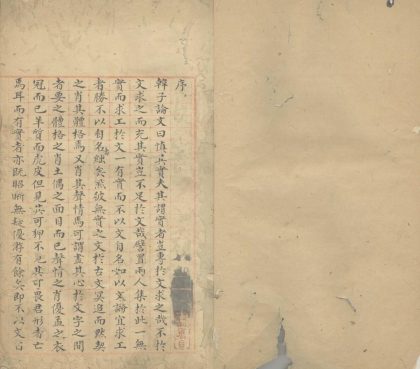 序
韓子論文曰慎其實夫其謂實者豈專於文求之哉不於
文求之而充其實豈不足於文哉譬置兩人集於此一無
實而求工於文一有實而不以文自名如以文論宜求工
者勝不以自名絀矣然彼無實之文於古文冥追而默契
之肖其體格焉又肖其聲情焉可謂盡其心於文字之間
者要之體格之肖土偶之面目而已聲情之肖優孟之衣
冠而已羊質而虎皮但見其可狎不見其可畏君形者亡
焉耳而有實者亦既昭晰無疑優游有餘矣即不以文自